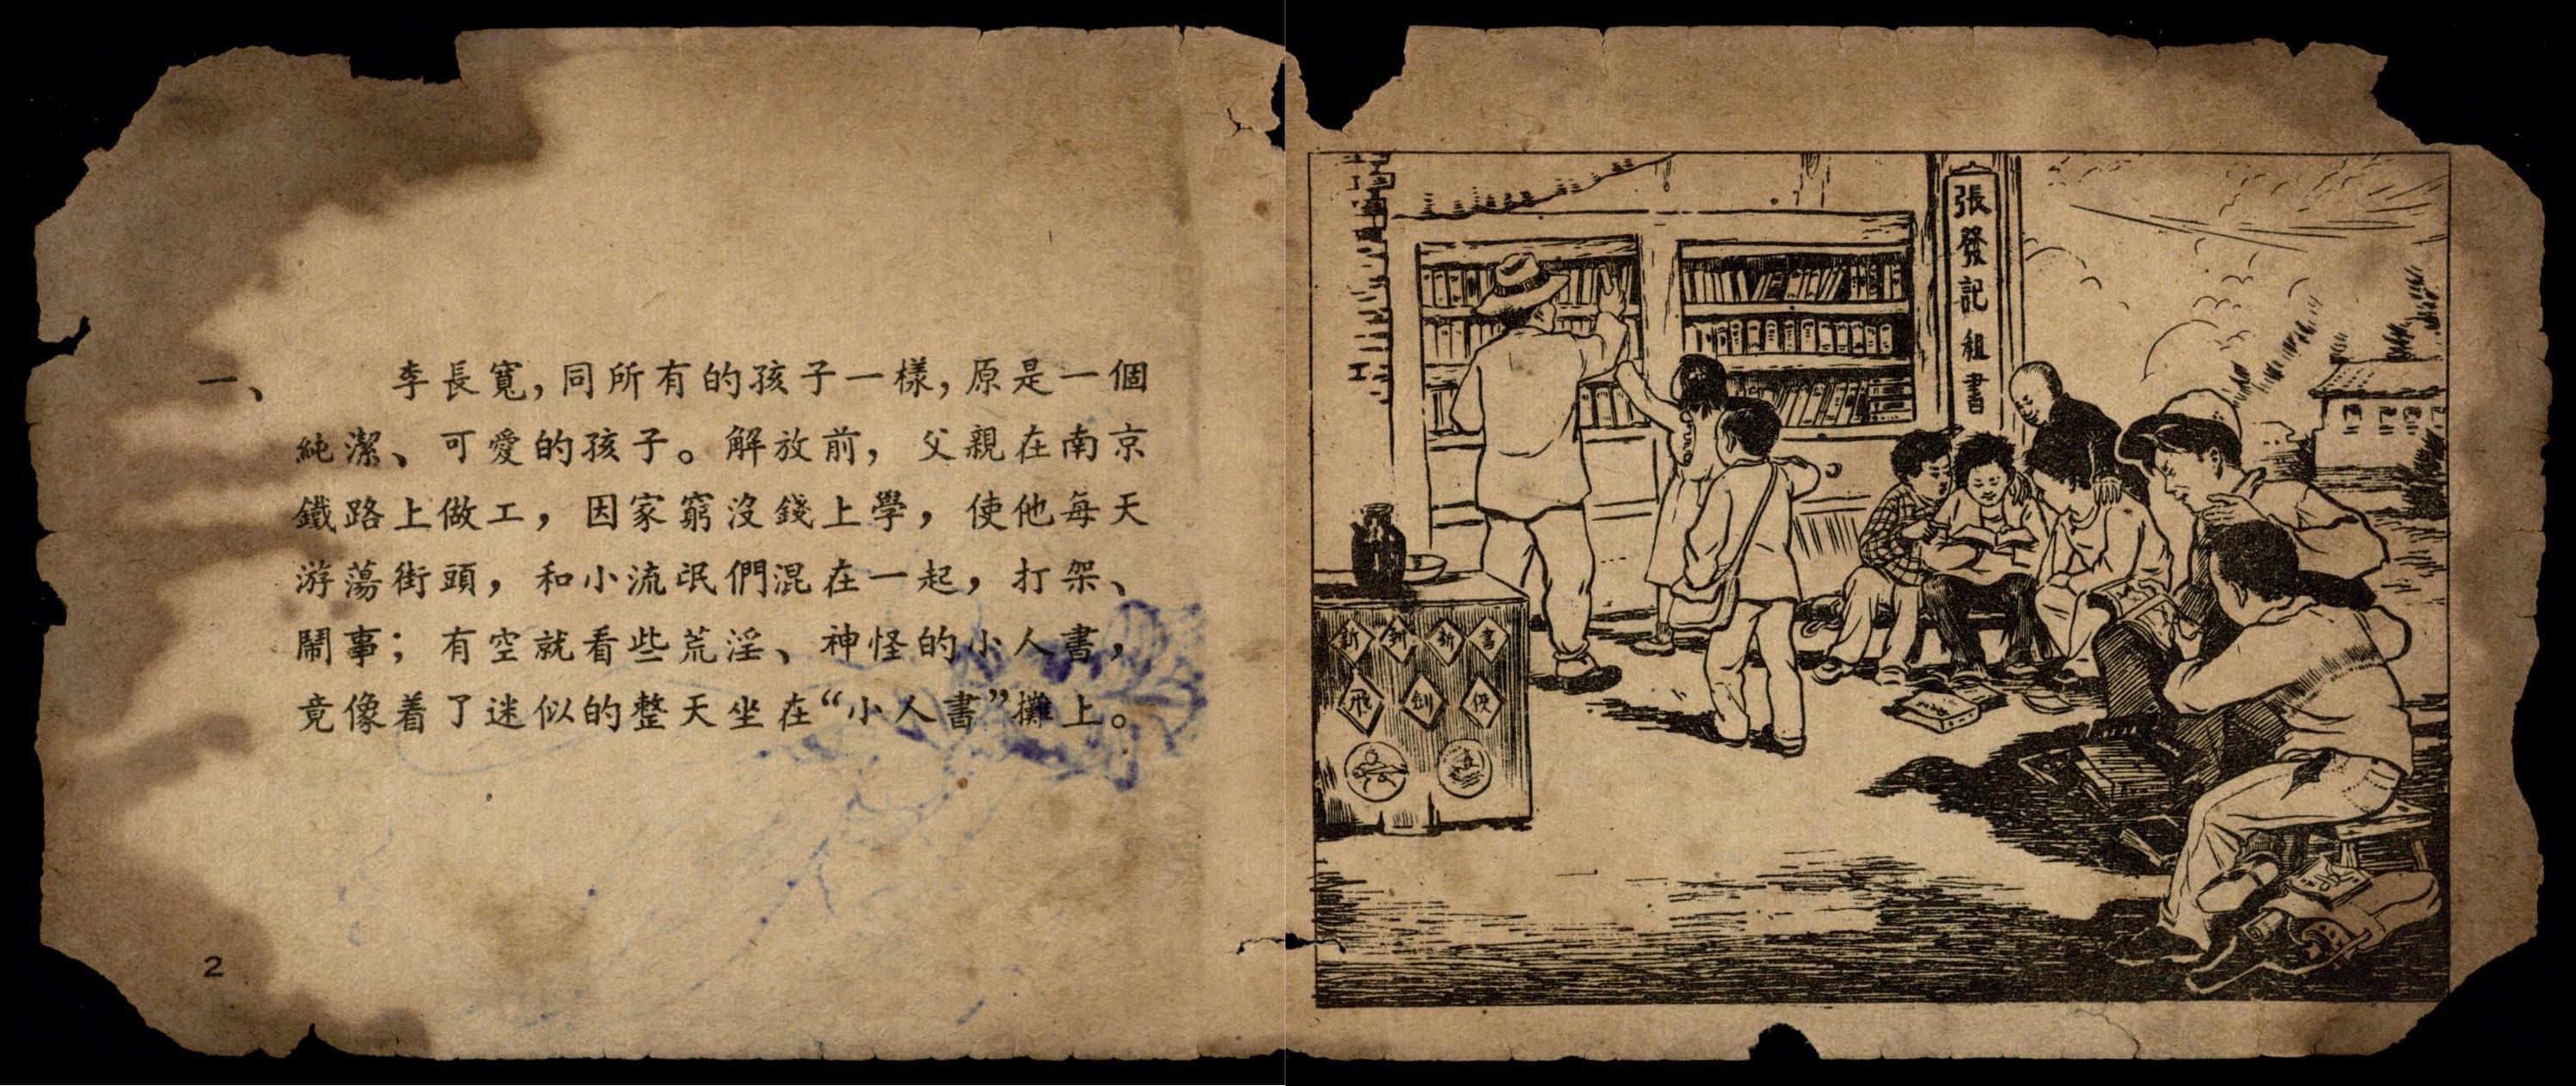 一、 李長寬，同所有的孩子一樣，原是一個
純潔、可愛的孩子。解放前，父親在南京
鐵路上做工，因家窮沒錢上學，使他每天
游蕩街頭，和小流氓們混在一起，打架、
鬧事；有空就看些荒淫、神怪的小人書，
竟像着了迷似的整天坐在“小人書”攤上。
2
張發記租書
新 新 新 書
飛 劍 俠